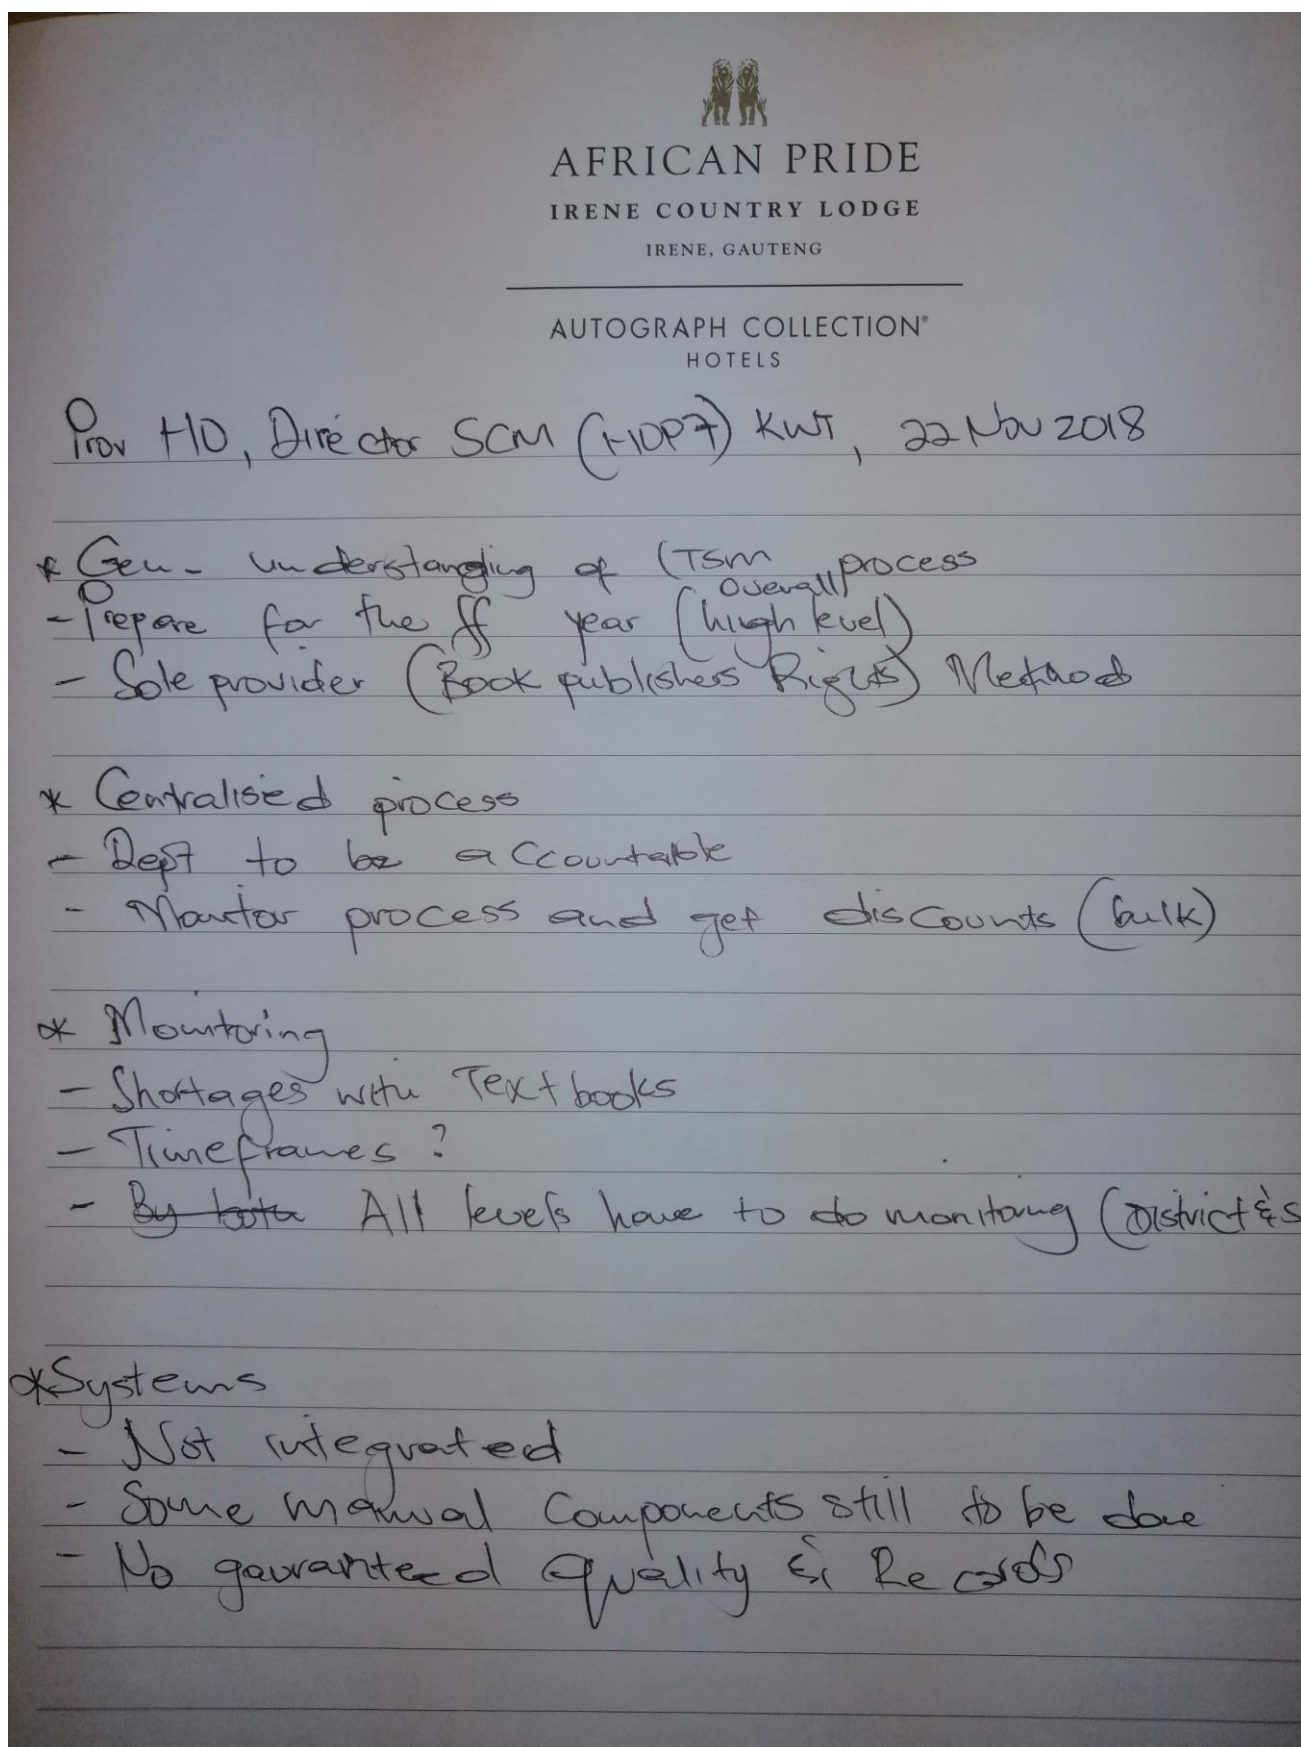 AFRICAN PRIDE
IRENE COUNTRY LODGE
IRENE, GAUTENG
AUTOGRAPH COLLECTION®
HOTELS
Prov HO, Director SCM (HOP7) KWT, 22 Nov 2018
* Gen - understanding of LTSM process
overall
- Prepare for the ff year (high level)
- Sole provider (Book publishers Rights) Method
* Centralised process
- Dept to be accountable
- Monitor process and get discounts (bulk)
* Monitoring
- Shortages with Textbooks
- Timeframes?
- By both All levels have to do monitoring (District & S
* Systems
- Not integrated
- Some manual Components still to be done
- No gauranteed Quality & Records